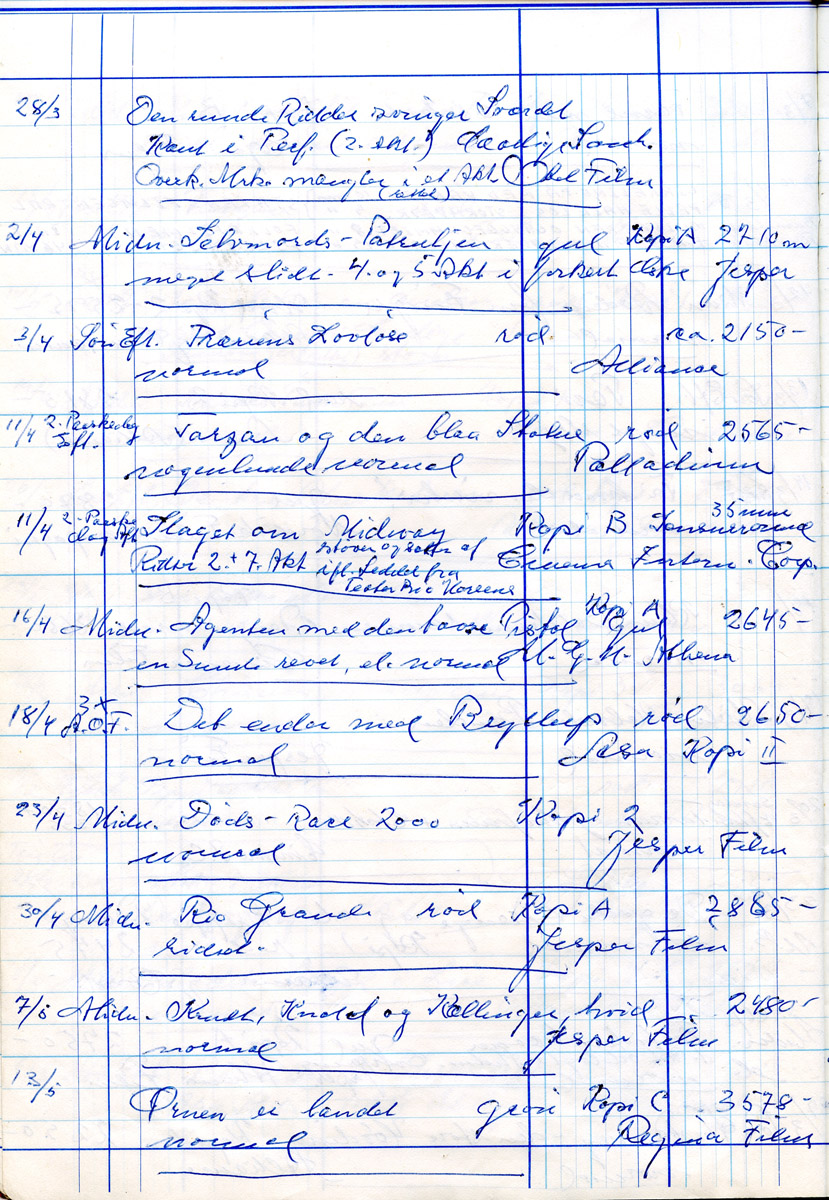 28/3 Den runde Ridder svinger Sværdet
Kant i Perf. (2. Akt!)
Overk. Mrk. mangler i et Akt. Obel Film
2/4 Midn. Selvmords-Patruljen gul Kopi A 2710 m
meget slidt - 4. og 5. Akt i forkert Æske Jesper
3/4 Søn Eft. Præriens Lovløse rød ca. 2150-
normal Alliance
11/4 2. Paaskedag Eft. Tarzan og den blaa Statue rød 2565-
nogenlunde normal Palladium
11/4 2. Paaskedag Aft. Slaget om Midway Kopi B 35 mm
Ridser 2. + 7. Akt Cinema Intern. Corp.
ifl. Seddel fra
Teater Bio Horsens
16/4 Midn. Agenten med den Pistol gul Kopi A 2645-
en Smule revet, el. normal M.-G.-M. Athena
18/4 A.O.F. 3x Det ender med Bryllup rød 2650-
normal Asa Kopi II
23/4 Midn. Døds-Race 2000 Kopi 2
normal Jesper Film
30/4 Midn. Rio Grande rød Kopi A 2885-
ridset. Jesper Film
7/5 Midn. Krudt, Knald og Kællinger, hvid 2480-
normal Jesper Film
13/5 Ørnen er landet grøn Kopi C 3578-
normal Regina Film